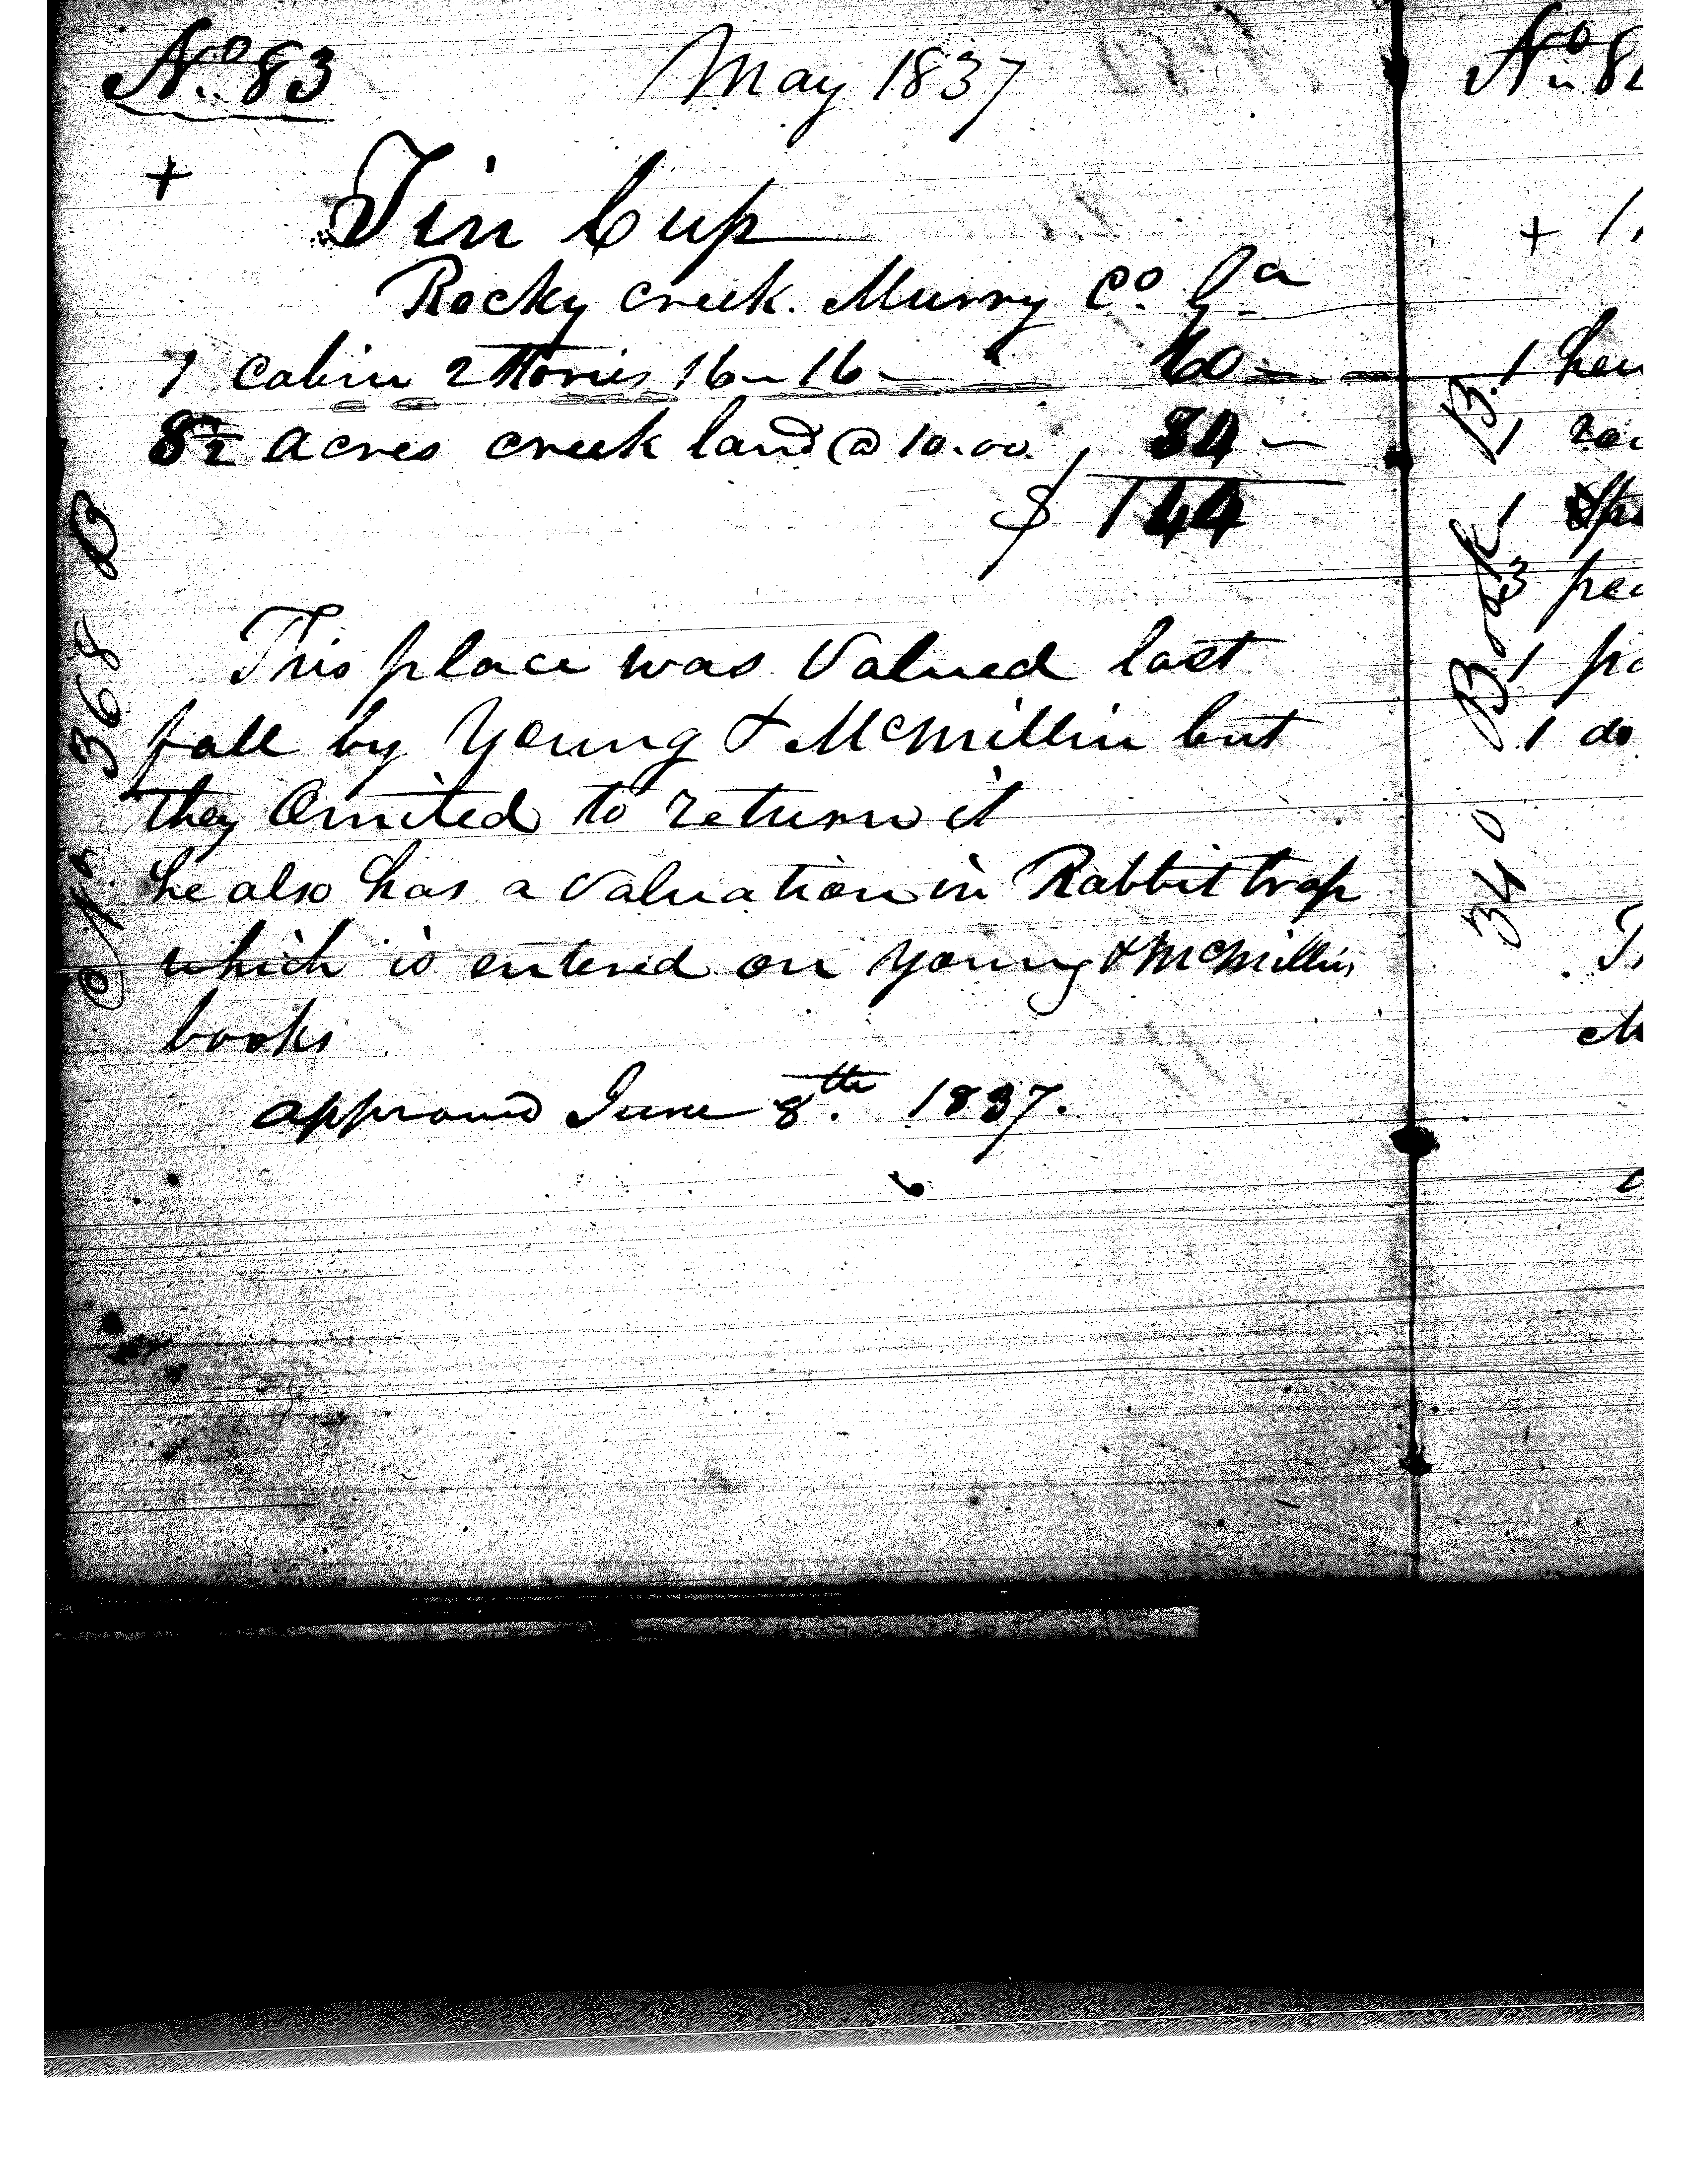 No 83 May 1837
+
Tin Cup
Rocky creek. Murry Co. Ga
1 cabin 2 stories 16 - 16 - 60 -
8½ acres creek land @ 10.00. 84 -
$ 144
This place was Valued last
fall by Young & McMillin but
they Omited to return it
he also has a valuation in Rabbit trap
which is entered on Young & McMillins
books
approved June 8th. 1837.
No. 368 B
No 8
+
B. Book
340
1
1
1
3
1
1 do